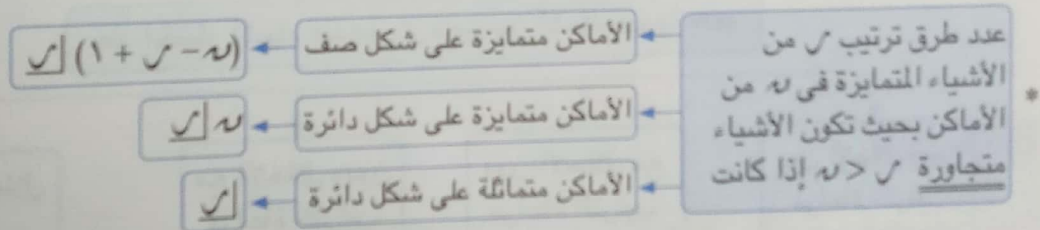 * عدد طرق ترتيب س من
الأشياء المتمايزة فى ن من
الأماكن بحيث تكون الأشياء
متجاورة س < ن إذا كانت
الأماكن متمايزة على شكل صف ← (ن − س + ١) ⌊س
الأماكن متمايزة على شكل دائرة ← ن ⌊س
الأماكن متماثلة على شكل دائرة ← ⌊س